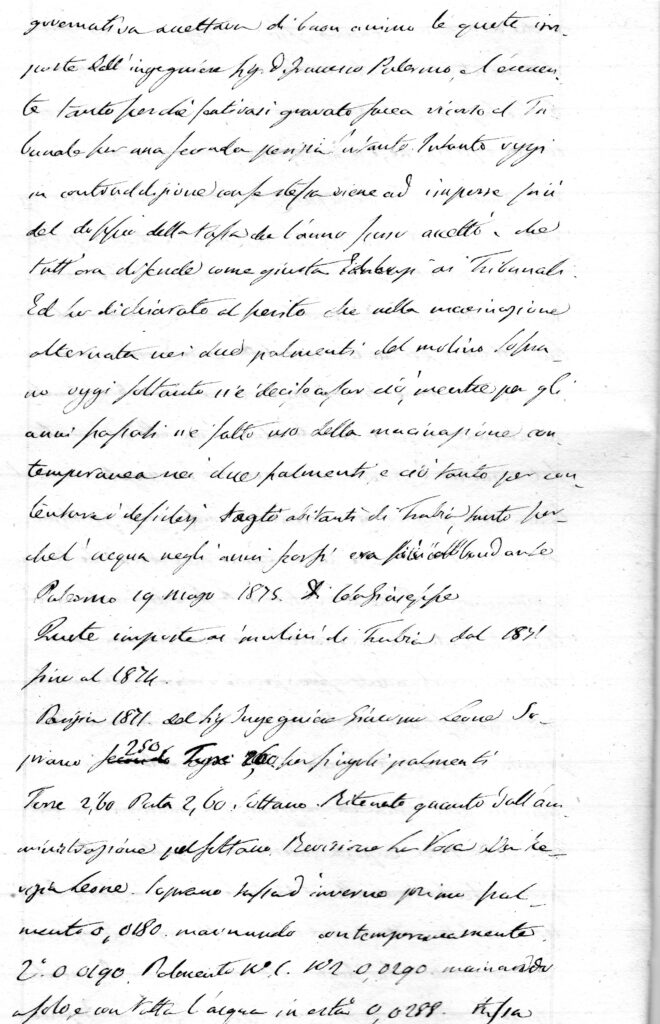 governativa accettava di buon animo le quote im-
poste dall'ingegniere Sig. D. Francesco Palermo, e l'esercen-
te tanto perché sentivasi gravato facea ricorso al Tri-
bunale per una seconda perizia. Intanto oggi
in contraddizione con se stessa viene ad imporre più
del doppio della tassa che l'anno scorso accettò e che
tutt'ora difende come giusta ai Tribunali.
Ed ho dichiarato al perito che nella macinazione
alternata nei due palmenti del molino Sopra-
no oggi soltanto si è deciso a far ciò, mentre per gli
anni passati si è fatto uso della macinazione con-
temporanea nei due palmenti e ciò tanto per con-
tentare i desideri degli abitanti di Trabia, tanto per-
che l'acqua negli anni scorsi era più abbondante
Palermo 19 maggio 1875. Giuseppe
Quote imposte ai molini di Trabia dal 1871
fino al 1874.
Perizia 1871 del Sig. Ingegniere Giacomo Leone So-
prano 250 2,60 per singoli palmenti
Torre 2,60 Prata 2,60 Sottano. Ritenuto quanto dall'am-
ministrazione pel Sottano. Revisione La Voca
Leone. Soprano tassa d'inverno primo pal-
mento 0,0180. macinando contemporaneamente
2° 0 0190. Palmento N° 1. N° 2 0,0290 macinando
a solo, e con tutta l'acqua in està 0,0288. tassa